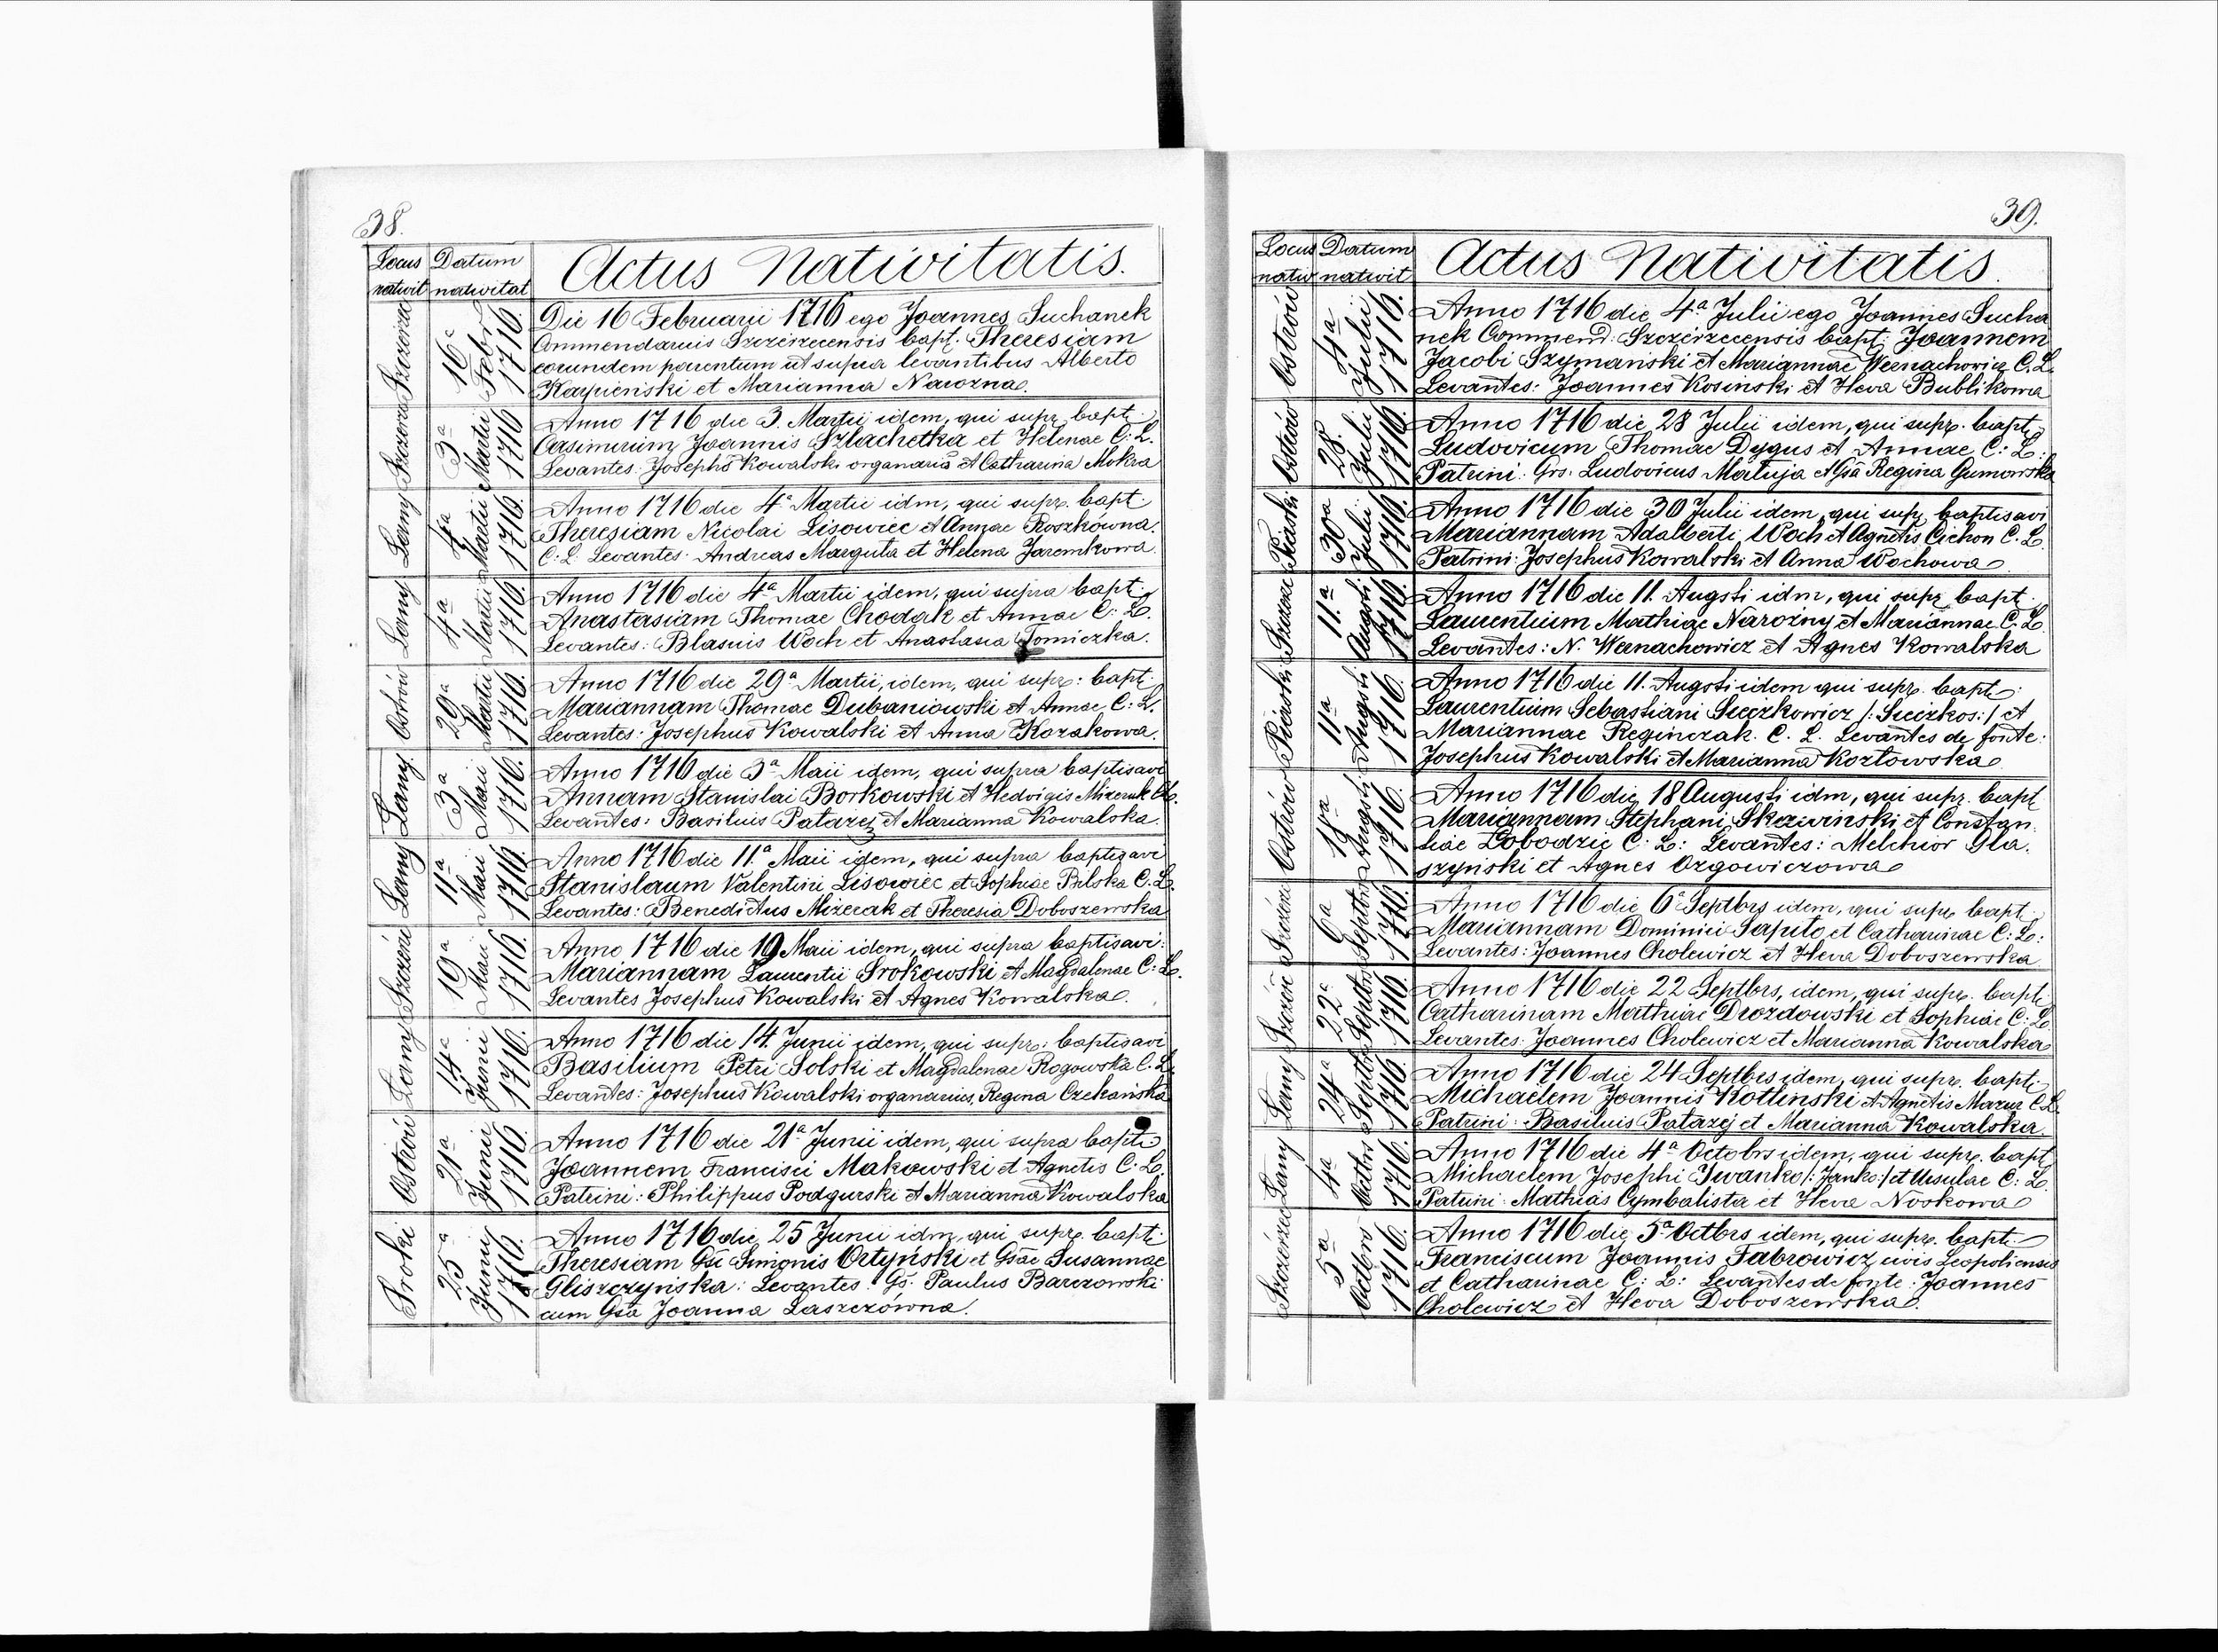 38.
Locus nativit
Datum nativitat
Actus Nativitatis.
Szczerze
16a Febr 1716.
Die 16 Februarii 1716 ego Joannes Suchanek
Commendarius Szczerzecensis bapt. Theresiam
eorundem parentum ut supra levantibus Alberto
Karpieński et Marianna Narozna.
Szczerze
3a Martii 1716
Anno 1716 die 3. Martii idem, qui supr bapt.
Casimirum Joannis Szlachetka et Helenae C: L.
Levantes: Josephs Kowalski organarius et Catharina Mokra
Łany
4a Martii 1716.
Anno 1716 die 4a Martii idm, qui supr. bapt.
Theresiam Nicolai Lisowiec et Annae Roszkówna.
C: L. Levantes: Andreas Marguta et Helena Jaremkowa
Łany
4a Martii 1716.
Anno 1716 die 4a Martii idem, qui supra bapt.
Anastasiam Thomae Chodak et Annae C: L.
Levantes: Blasius Woch et Anastasia Tomiczka.
Ostrów
29a Martii 1716.
Anno 1716 die 29a Martii, idem, qui supr: bapt.
Mariannam Thomae Dubaniowski et Annae C: L.
Levantes: Josephus Kowalski et Anna Kozakowa.
Łany
3a Maii 1716.
Anno 1716 die 3a Maii idem, qui supra baptisavi
Annam Stanislai Borkowski et Hedvigis Mizerak C.L.
Levantes: Basilius Patazej et Marianna Kowalska.
Łany
11a Maii 1716.
Anno 1716 die 11.a Maii idem, qui supra baptisavi
Stanislaum Valentini Lisowiec et Sophiae Bilska C. L.
Levantes: Benedictus Mizerak et Theresia Doboszewska
Szczerze
19a Maii 1716.
Anno 1716 die 19 Maii idem, qui supra baptisavi:
Mariannam Laurentii Srokowski et Magdalenae C: L.
Levantes Josephus Kowalski et Agnes Kowalska.
Łany
14a Junii 1716.
Anno 1716 die 14. Junii idem, qui supr: baptisavi
Basilium Petri Solski et Magdalenae Rogowska C. L.
Levantes: Josephus Kowalski organarius, Regina Czekańska
Ostrów
21a Junii 1716.
Anno 1716 die 21a Junii idem, qui supra bapt.
Joannem Francisci Makowski et Agnetis C: L.
Patrini: Philippus Podgurski et Marianna Kowalska
Sroki
25a Junii 1716.
Anno 1716 die 25 Junii idm, qui supr. bapt.
Theresiam Gsi Simonis Ortyński et Gsae Susannae
Gliszczyńska: Levantes: Gs. Paulus Barczowski
cum Gsa Joanna Łaszczówna.
39.
Locus nativ
Datum nativit
Actus Nativitatis.
Ostrów
4a Julii 1716.
Anno 1716 die 4a Julii ego Joannes Sucha
nek Commend: Szczerzecensis bapt: Joannem
Jacobi Szymański et Mariannae Wernachowicz C. L.
Levantes: Joannes Kosinski et Heva Bublikowa
Ostrów
28. Julii 1716.
Anno 1716 die 28 Julii idem, qui supr. bapt.
Ludovicum Thomae Dygus et Annae C: L:
Patrini: Grs. Ludovicus Matuja et Gsa Regina Gumowska
Piaski
30a Julii 1716.
Anno 1716 die 30 Julii idem, qui supr baptisavi
Mariannam Adalberti Woch et Agnetis Cichon C. L.
Patrini: Josephus Kowalski et Anna Wochowa
Szczerze
11.a Augsti 1716.
Anno 1716 die 11. Augsti idm, qui supr bapt.
Laurentium Mathiae Narożny et Mariannae C. L.
Levantes: N. Wernachowicz et Agnes Kowalska
Piaski
11a Augsti 1716.
Anno 1716 die 11. Augsti idem qui supr. bapt:
Laurentium Sebastiani Sieczkowicz /: Sieczkos: / et
Mariannae Reginczak. C. L. Levantes de fonte:
Josephus Kowalski et Marianna Kozłowska
Ostrów
18a Augsti 1716.
Anno 1716 die 18 Augusti idm, qui supr. bapt
Mariannam Stephani Skrzwinski et Constan
tiae Łobodzic C: L: Levantes: Melchior Gla.
szyński et Agnes Ozgowiczowa
Szczerze
6a Septbr 1716.
Anno 1716 die 6a Septbrs idem, qui supr bapt.
Mariannam Dominici Saputo et Catharinae C: L:
Levantes: Joannes Cholewicz et Heva Doboszewska
Szczerze
22a Septbr 1716.
Anno 1716 die 22 Septbrs, idem, qui supr. bapt.
Catharinam Mathiae Drozdowski et Sophiae C: L.
Levantes: Joannes Cholewicz et Marianna Kowalska
Łany
24a Septbr 1716.
Anno 1716 die 24 Septbrs idem, qui supr. bapt.
Michaelem Joannis Kotlinski et Agnetis Mazur C.L.
Patrini: Basilius Patazej et Marianna Kowalska.
Łany
4a Octbrs 1716.
Anno 1716 die 4a Octobrs idem, qui supr. bapt
Michaelem Josephi Iwanko /: Janko: / et Ursulae C: L.
Patrini: Mathias Cymbalista et Heva Noskowa
Szczerze
5a Octbrs 1716.
Anno 1716 die 5a Octbrs idem, qui supr. bapt.
Franciscum Joannis Fabrowicz civis Leopoliensis
et Catharinae C: L: Levantes de fonte: Joannes
Cholewicz et Heva Doboszewska.